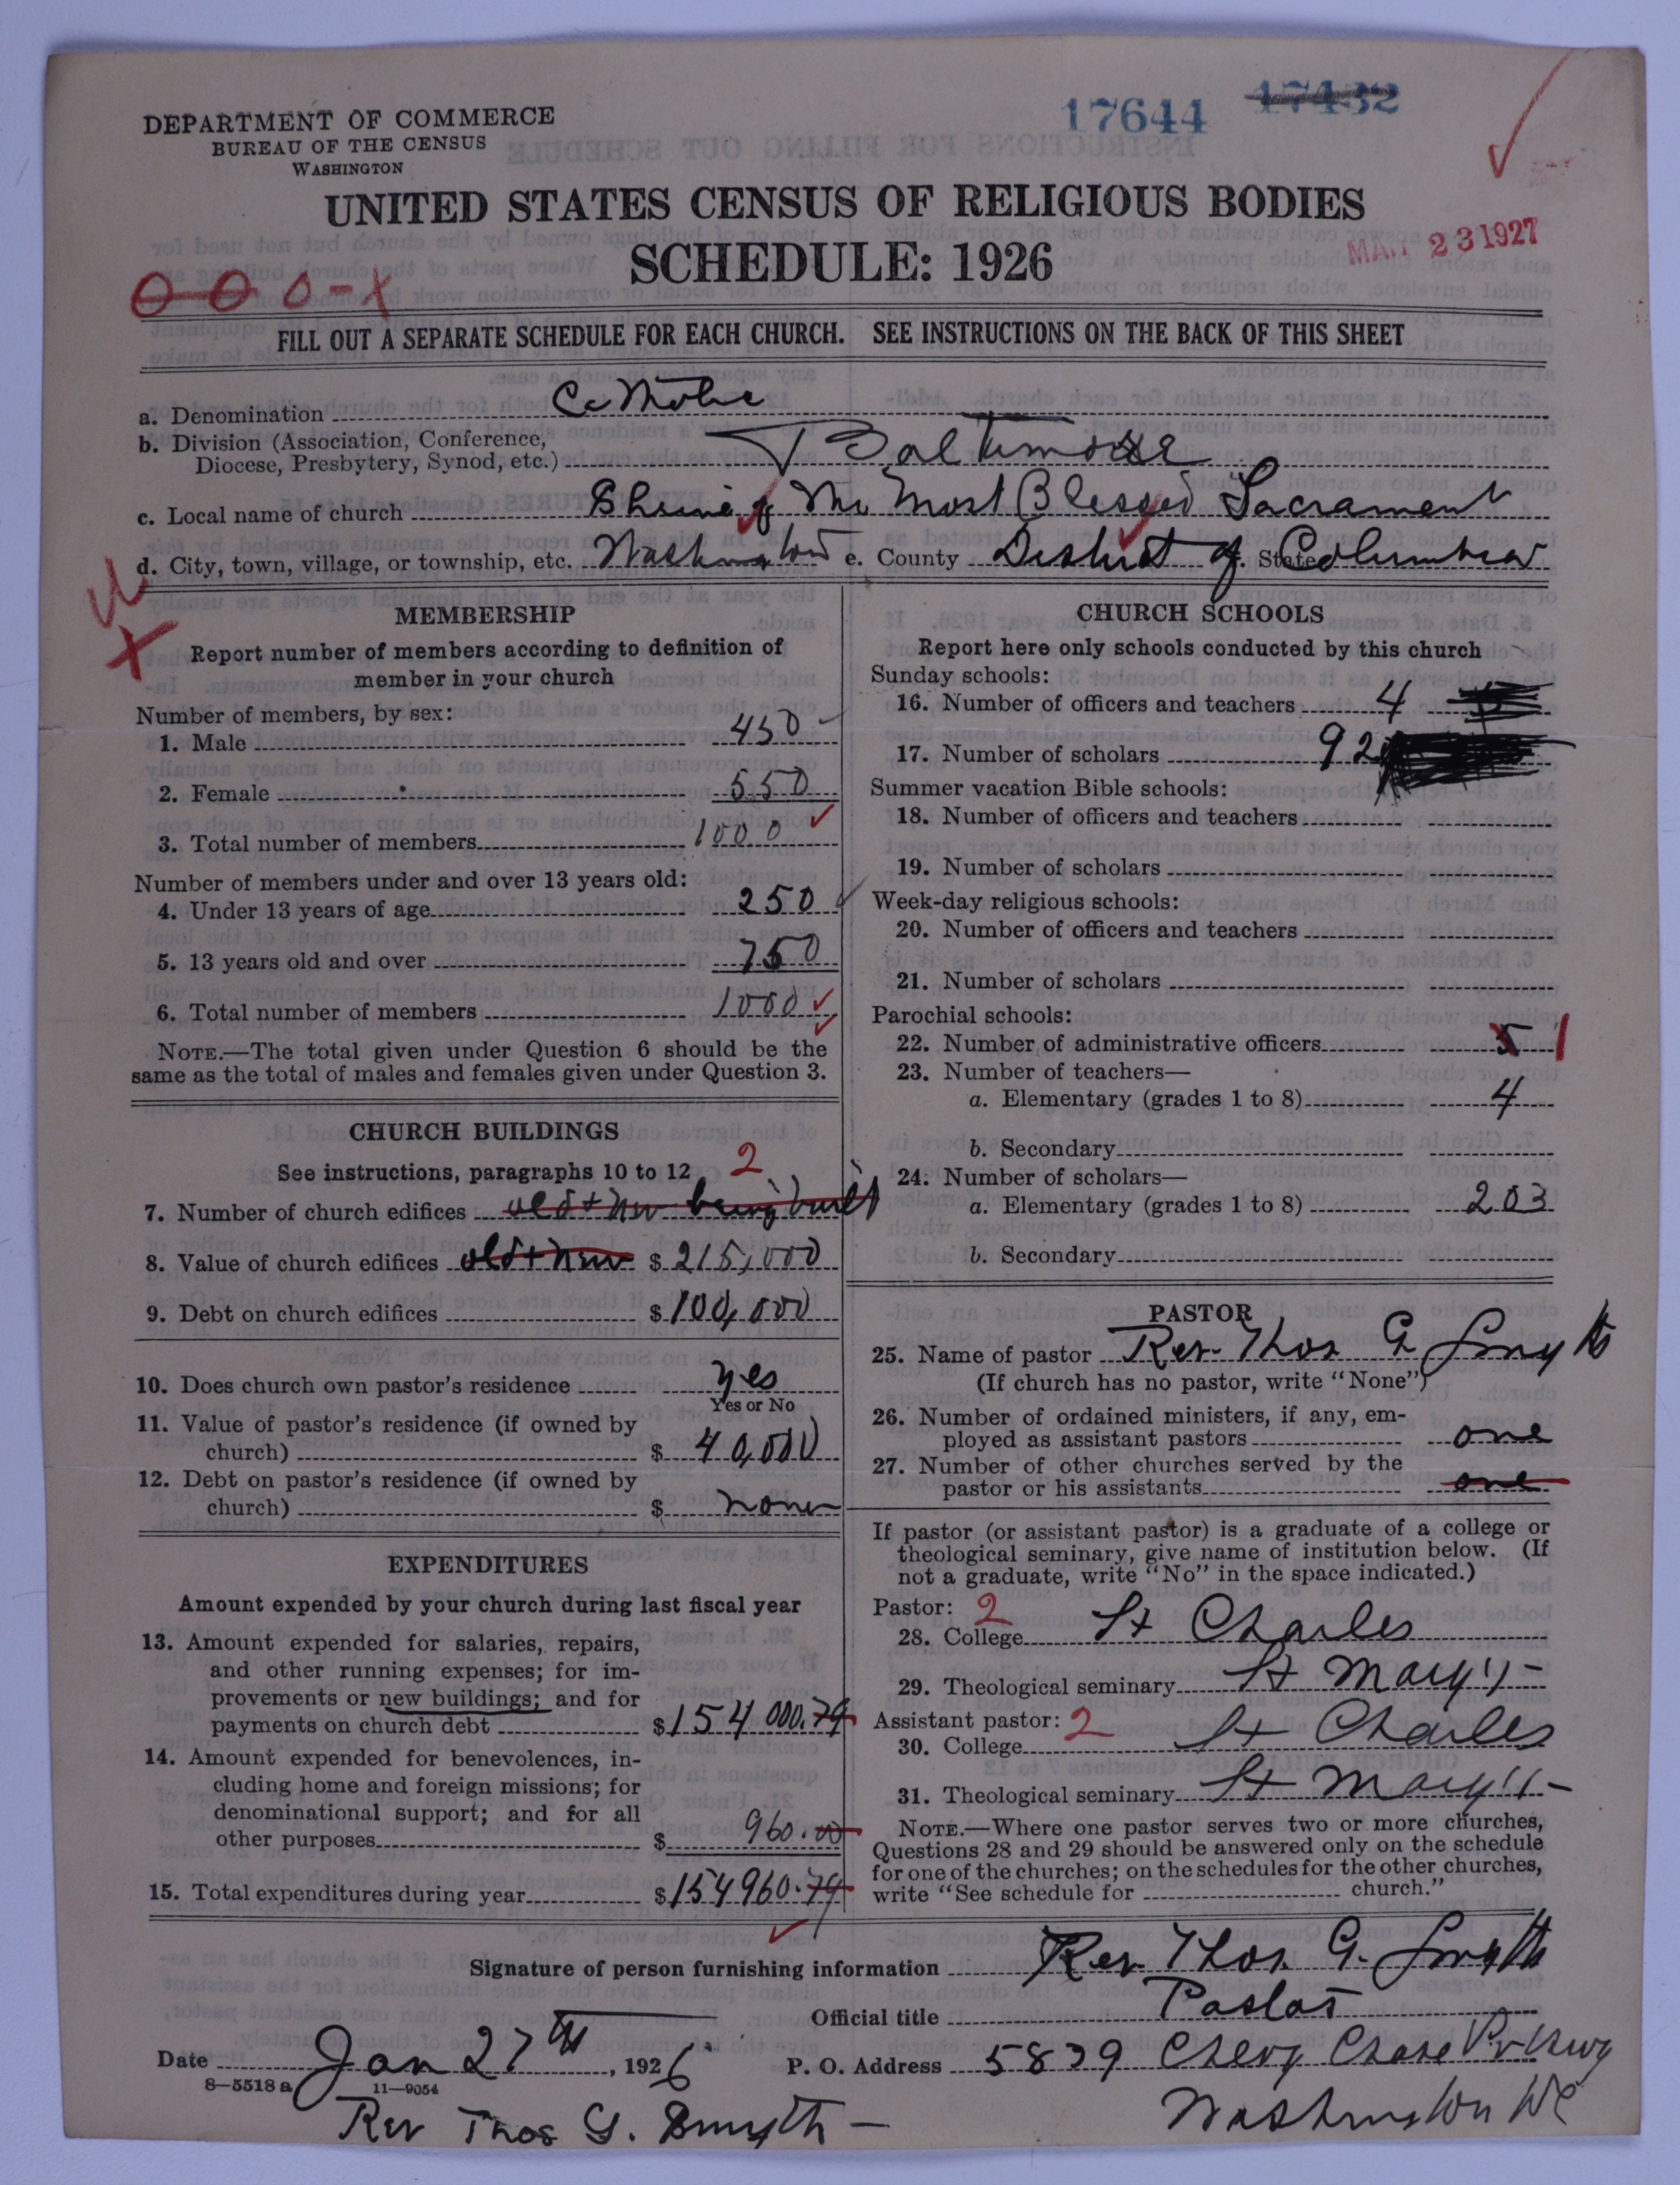 17644 17432
DEPARTMENT OF COMMERCE
BUREAU OF THE CENSUS
WASHINGTON
UNITED STATES CENSUS OF RELIGIOUS BODIES
SCHEDULE: 1926
MAR 23 1927
FILL OUT A SEPARATE SCHEDULE FOR EACH CHURCH. SEE INSTRUCTIONS ON THE BACK OF THIS SHEET
a. Denomination Catholic
b. Division (Association, Conference,
Diocese, Presbytery, Synod, etc.) Baltimore
c. Local name of church Shrine of The Most Blessed Sacrament
d. City, town, village, or township, etc. Washington e. County District of State Columbia
MEMBERSHIP
Report number of members according to definition of
member in your church
Number of members, by sex:
1. Male 450
2. Female 550
3. Total number of members 1000
Number of members under and over 13 years old:
4. Under 13 years of age 250
5. 13 years old and over 750
6. Total number of members 1000
NOTE.—The total given under Question 6 should be the
same as the total of males and females given under Question 3.
CHURCH BUILDINGS
See instructions, paragraphs 10 to 12 2
7. Number of church edifices old + new being built
8. Value of church edifices old + new $ 215,000
9. Debt on church edifices $ 100,000
10. Does church own pastor's residence yes
Yes or No
11. Value of pastor's residence (if owned by
church) $ 40,000
12. Debt on pastor's residence (if owned by
church) $ none
EXPENDITURES
Amount expended by your church during last fiscal year
13. Amount expended for salaries, repairs,
and other running expenses; for im-
provements or new buildings; and for
payments on church debt $ 154 000.79
14. Amount expended for benevolences, in-
cluding home and foreign missions; for
denominational support; and for all
other purposes $ 960.00
15. Total expenditures during year $ 154960.79
CHURCH SCHOOLS
Report here only schools conducted by this church
Sunday schools:
16. Number of officers and teachers 4
17. Number of scholars 92
Summer vacation Bible schools:
18. Number of officers and teachers
19. Number of scholars
Week-day religious schools:
20. Number of officers and teachers
21. Number of scholars
Parochial schools:
22. Number of administrative officers 5 1
23. Number of teachers—
a. Elementary (grades 1 to 8) 4
b. Secondary
24. Number of scholars—
a. Elementary (grades 1 to 8) 203
b. Secondary
PASTOR
25. Name of pastor Rev. Thos G Smyth
(If church has no pastor, write "None")
26. Number of ordained ministers, if any, em-
ployed as assistant pastors one
27. Number of other churches served by the
pastor or his assistants one
If pastor (or assistant pastor) is a graduate of a college or
theological seminary, give name of institution below. (If
not a graduate, write "No" in the space indicated.)
Pastor: 2
28. College St Charles
29. Theological seminary St Mary's -
Assistant pastor: 2
30. College St Charles
31. Theological seminary St Mary's -
NOTE.—Where one pastor serves two or more churches,
Questions 28 and 29 should be answered only on the schedule
for one of the churches; on the schedules for the other churches,
write "See schedule for church."
Signature of person furnishing information Rev Thos. G. Smyth
Official title Pastor
Date Jan 27th, 1926 P. O. Address 5839 Chevy Chase Pvkwy
8—5518 a 11—9054
Rev Thos G. Smyth — Washington DC